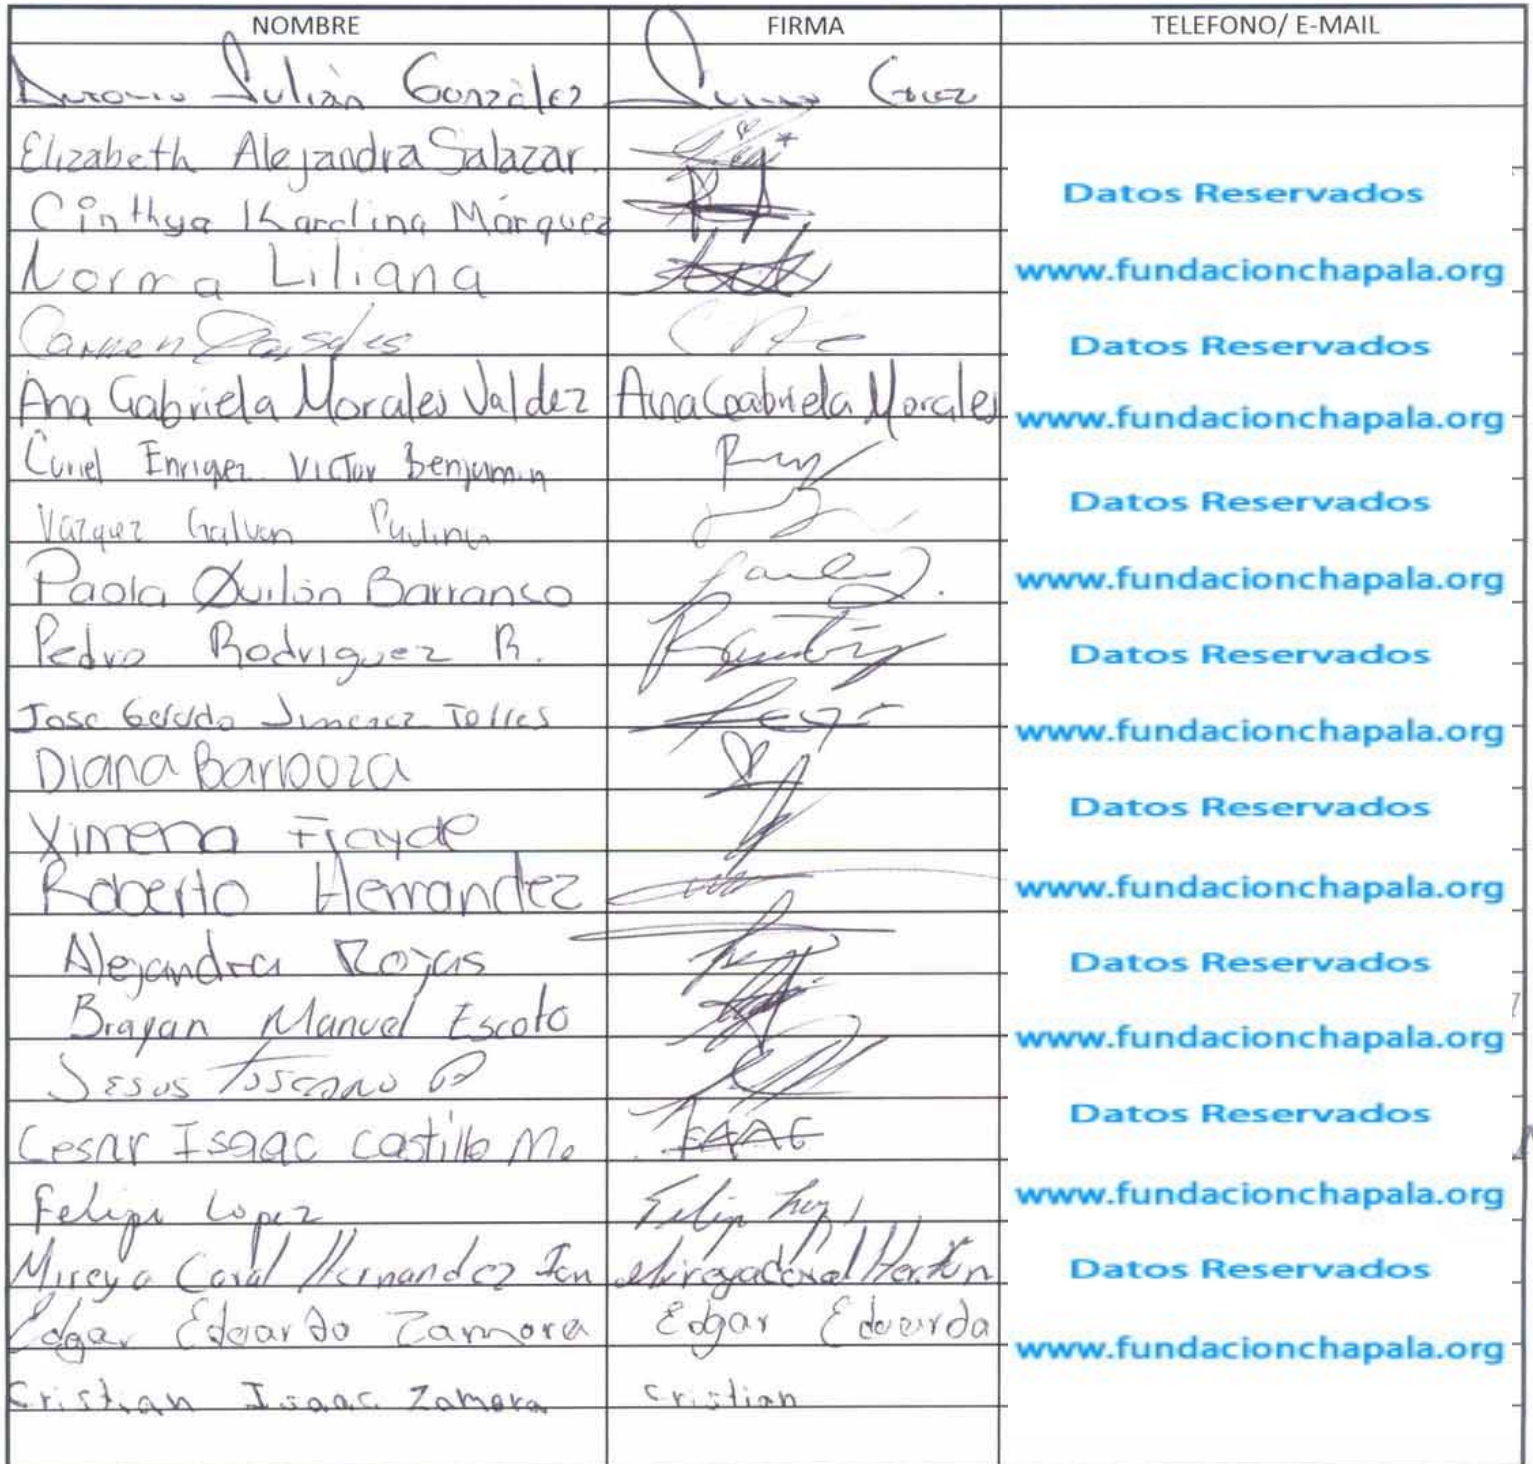 NOMBRE FIRMA TELEFONO/ E-MAIL
Antonio Julián González
Elizabeth Alejandra Salazar.
Cinthya Karolina Márquez Datos Reservados
Norma Liliana www.fundacionchapala.org
Carmen Datos Reservados
Ana Gabriela Morales Valdez Ana Gabriela Morales www.fundacionchapala.org
Curiel Enriqez Victor Benjamin
Vazquez Galvan Paulina Datos Reservados
Paola Quilón Barranco www.fundacionchapala.org
Pedro Rodriguez R. Datos Reservados
Jose Gerardo Jimenez Torres www.fundacionchapala.org
Diana Barboza
Ximena Datos Reservados
Roberto Hernandez www.fundacionchapala.org
Alejandra Rojas Datos Reservados
Brayan Manuel Escoto www.fundacionchapala.org
Jesus Toscano
Cesar Isaac Castillo M. Datos Reservados
Felipe Lopez Felip www.fundacionchapala.org
Mireya Coral Hernandez Datos Reservados
Edgar Eduardo Zamora Edgar Eduardo www.fundacionchapala.org
Cristian Isaac Zamora Cristian